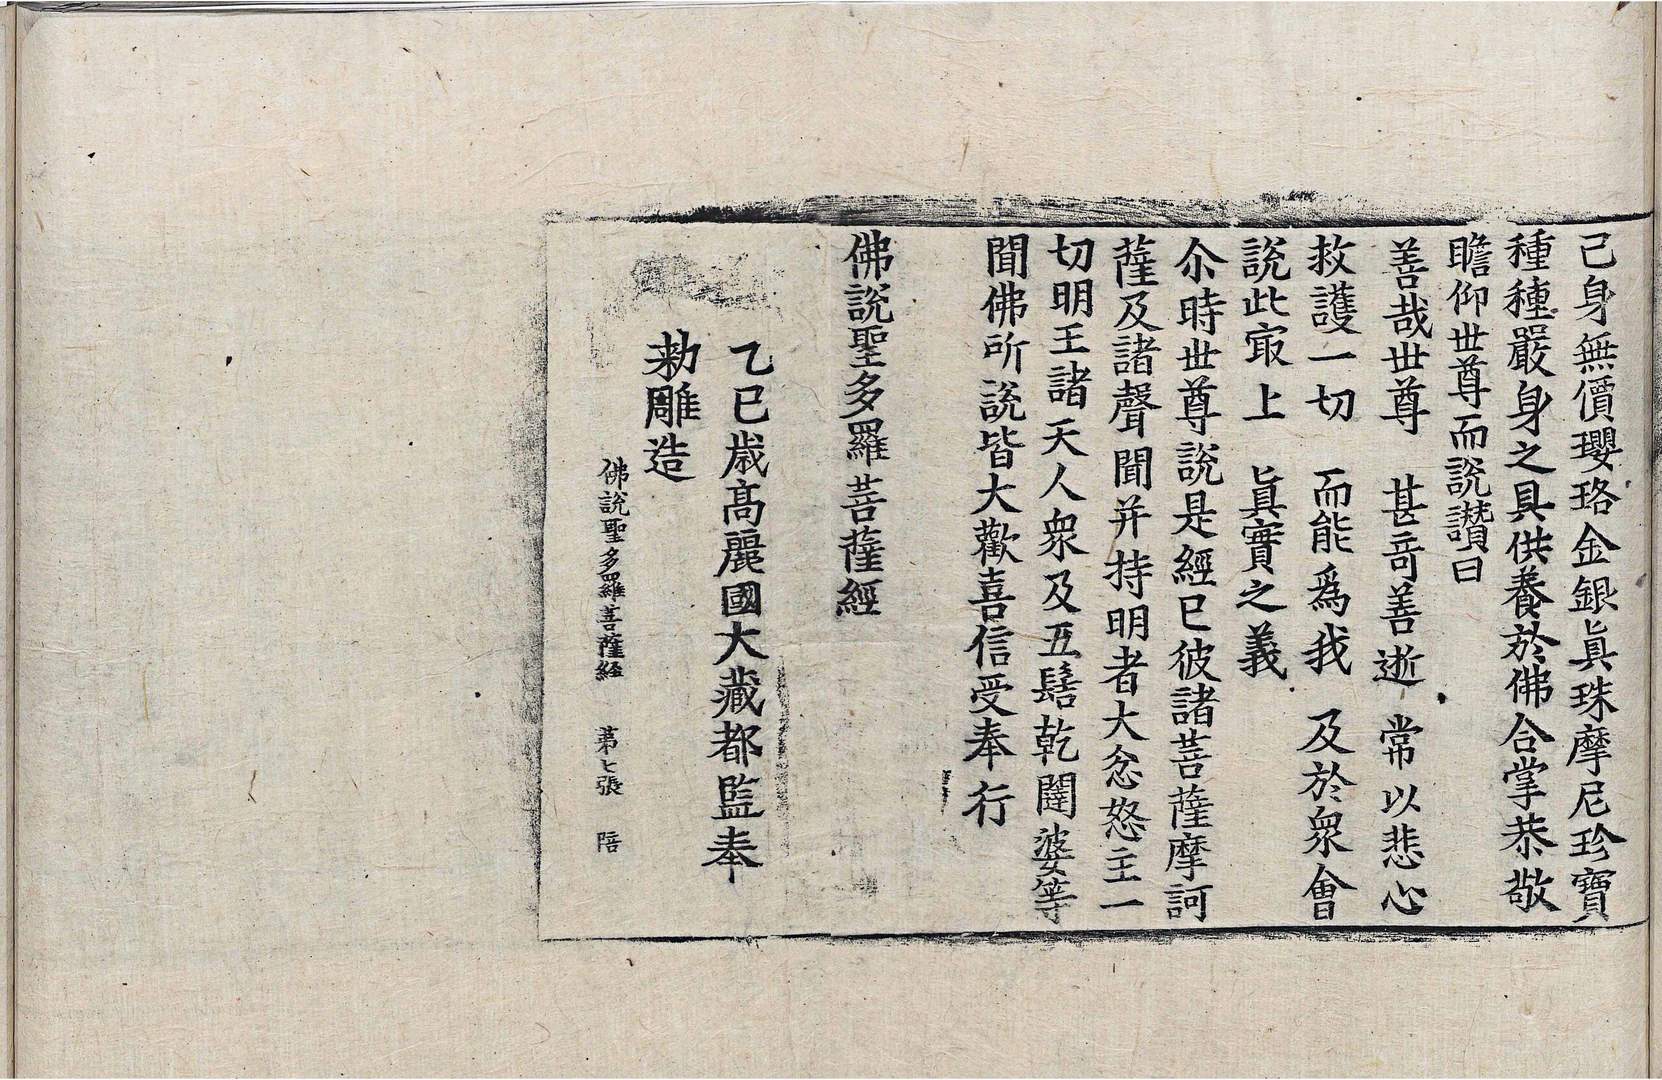 己身無價瓔珞金銀眞珠摩尼珍寶
種種嚴身之具供養於佛合掌恭敬
瞻仰世尊而說讚曰
善哉世尊　甚竒善逝　常以悲心
救護一切　而能爲我　及於衆會
說此㝡上　眞實之義
尒時世尊說是經已彼諸菩薩摩訶
薩及諸聲聞并持明者大忿怒主一
切明王諸天人衆及五髻乾闥婆等
聞佛所說皆大歡喜信受奉行
佛說聖多羅菩薩經
乙巳歳高麗國大藏都監奉
勑雕造
佛說聖多羅菩薩経　第七張　陪